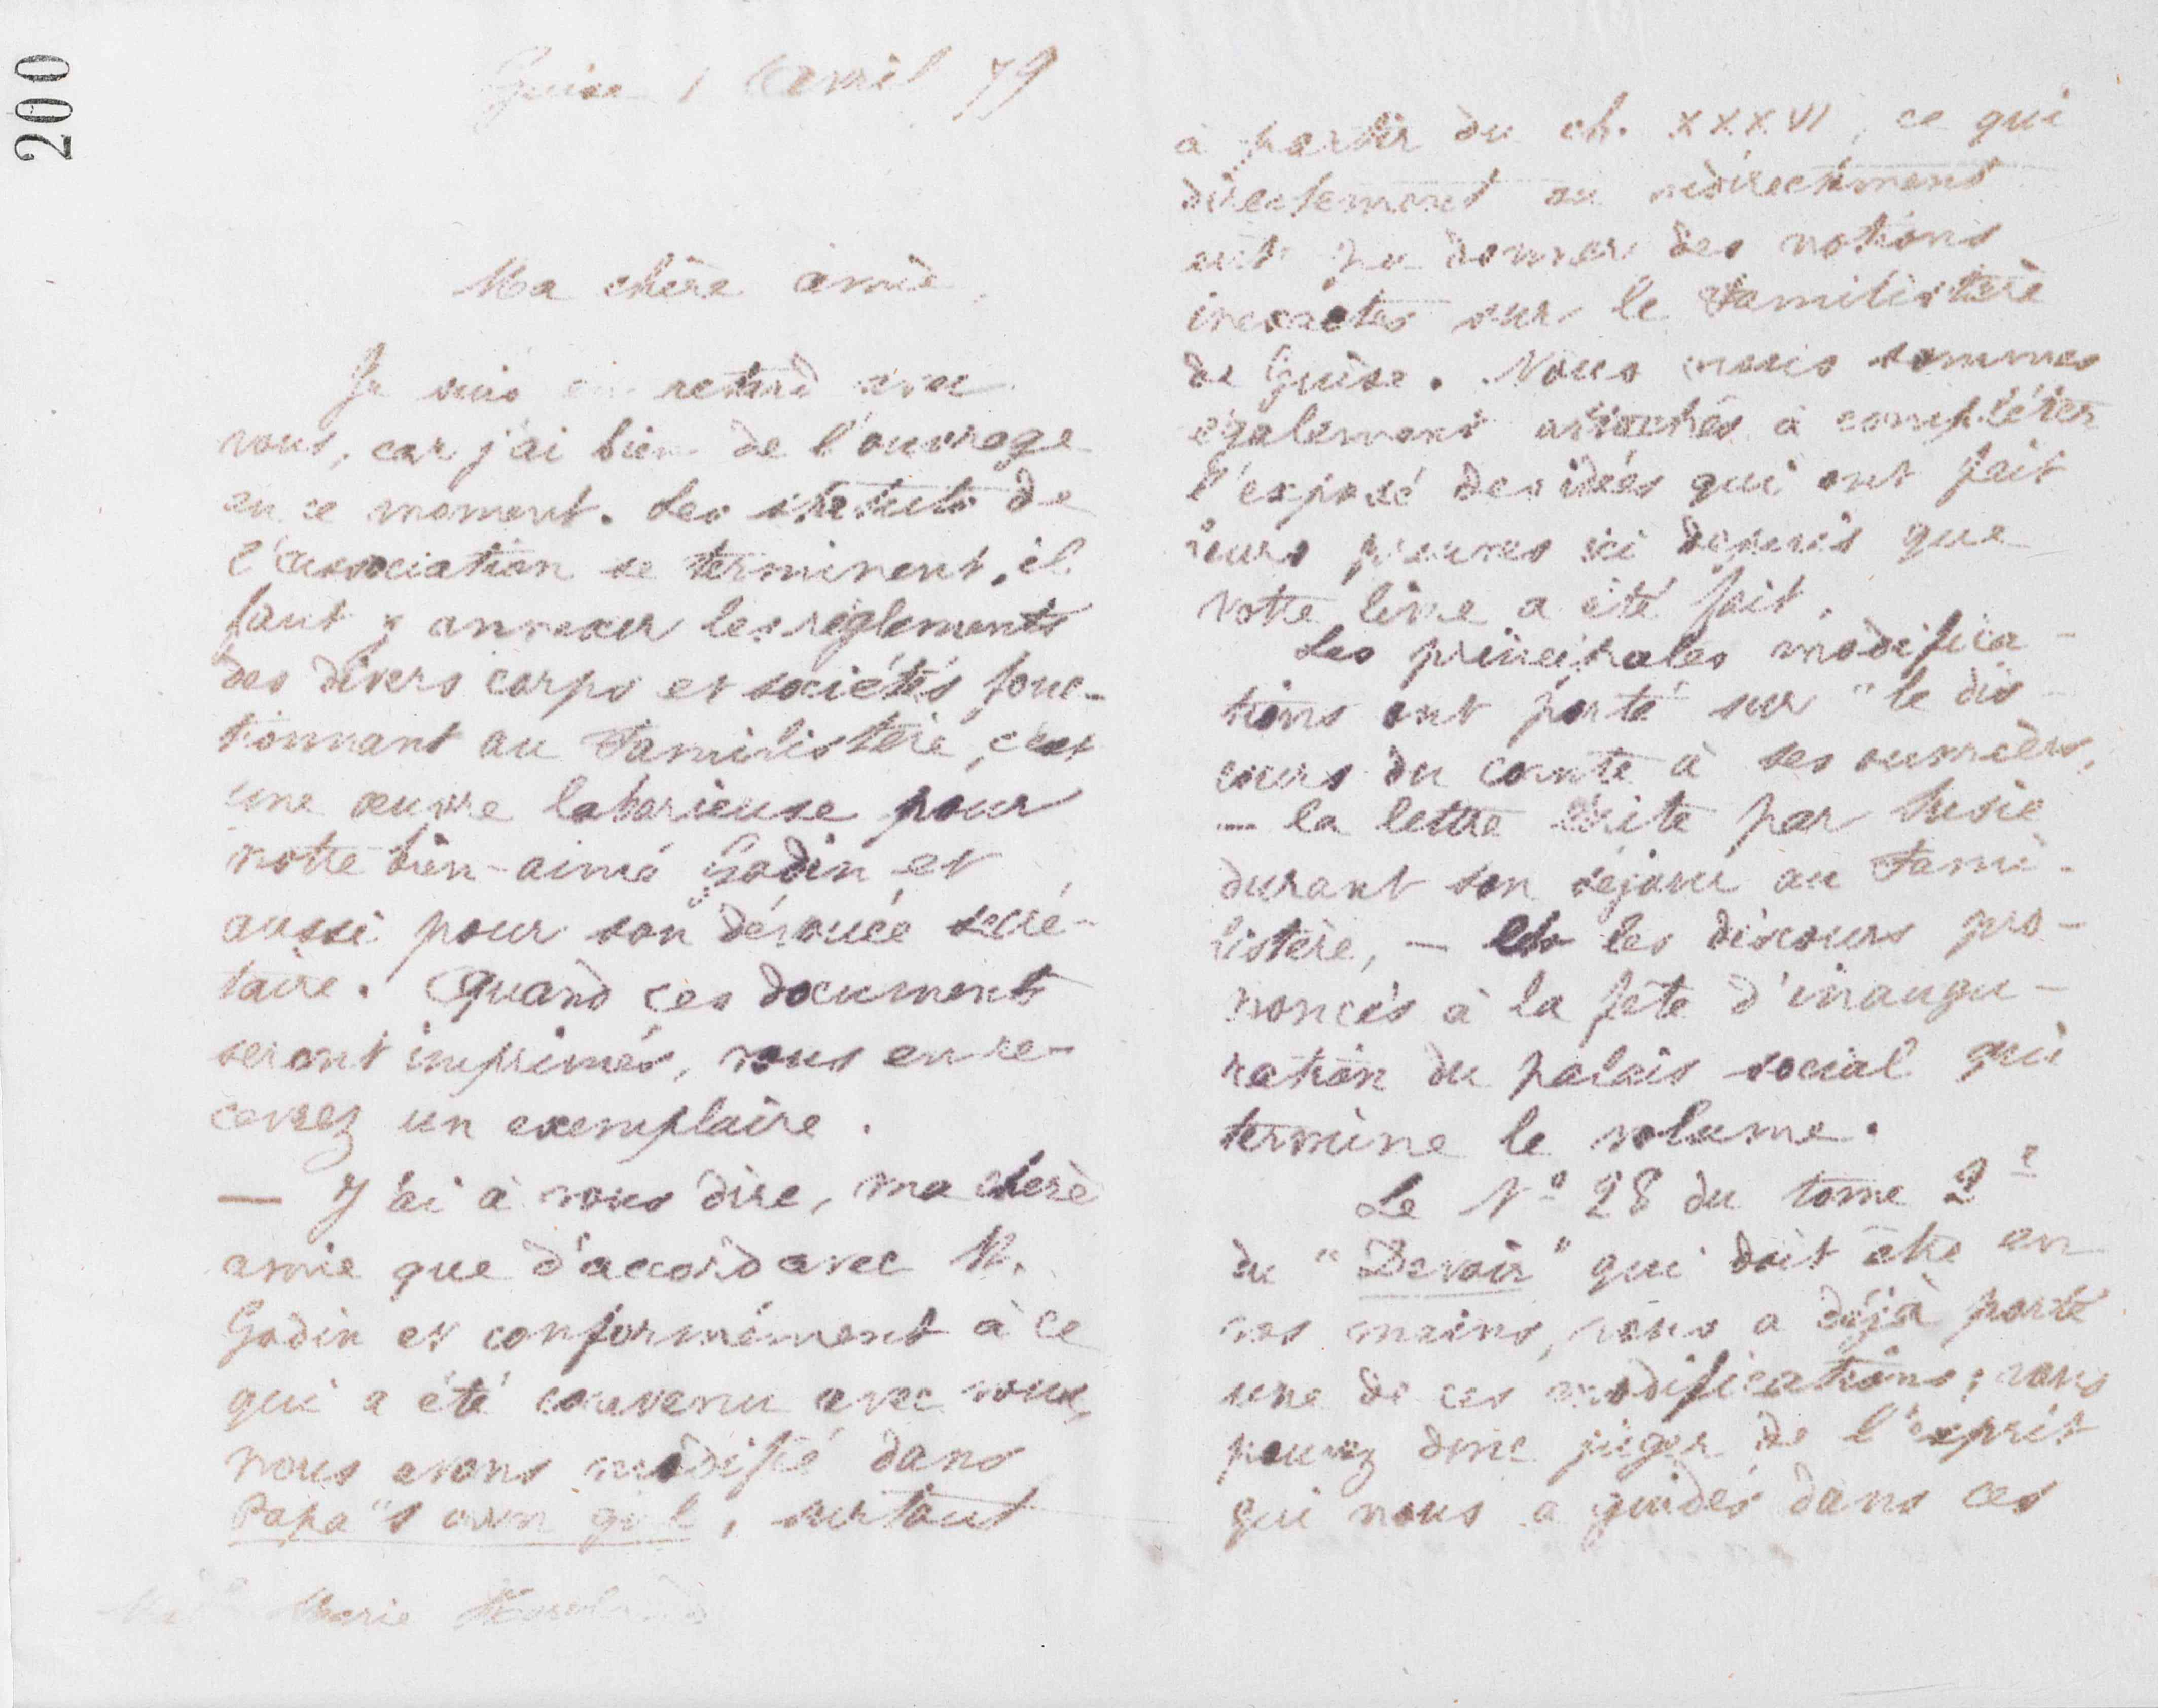 200
Guise 1 Avril 79
Ma chère amie,
Je suis en retard avec
vous, car j'ai bien de l'ouvrage
en ce moment. Les statuts de
l'association se terminent, il
faut y annexer les règlements
des divers corps et sociétés fonc-
tionnant au Familistère, c'est
une œuvre laborieuse pour
notre bien-aimé Godin et
aussi pour son dévouée secré-
taire. Quand ces documents
seront imprimés, vous en re-
cevrez un exemplaire.
— J'ai à vous dire, ma chère
amie que d'accord avec M.
Godin et conformément à ce
qui a été convenu avec vous,
nous avons modifié dans
Papa"s own girl, surtout
Marie Howland
à partir du ch. XXXVI, ce qui
directement ou indirectement
eut pu donner des notions
inexactes sur le Familistère
de Guise. Nous nous sommes
également attachés à compléter
l'exposé des idées qui ont fait
leurs preuves ici depuis que
votre livre a été fait.
Les principales modifica-
tions ont porté sur "le dis-
cours du comte à ses ouvriers,
— la lettre écrite par Susie
durant son séjour au Fami-
listère, — les discours pro-
noncés à la fête d'inaugu-
ration du palais social qui
termine le volume.
Le Nº 28 du tome 2e
du "Devoir" qui doit être en
vos mains, vous a déjà porté
une de ces modifications; vous
pouvez donc juger de l'esprit
qui nous a guidés dans ces